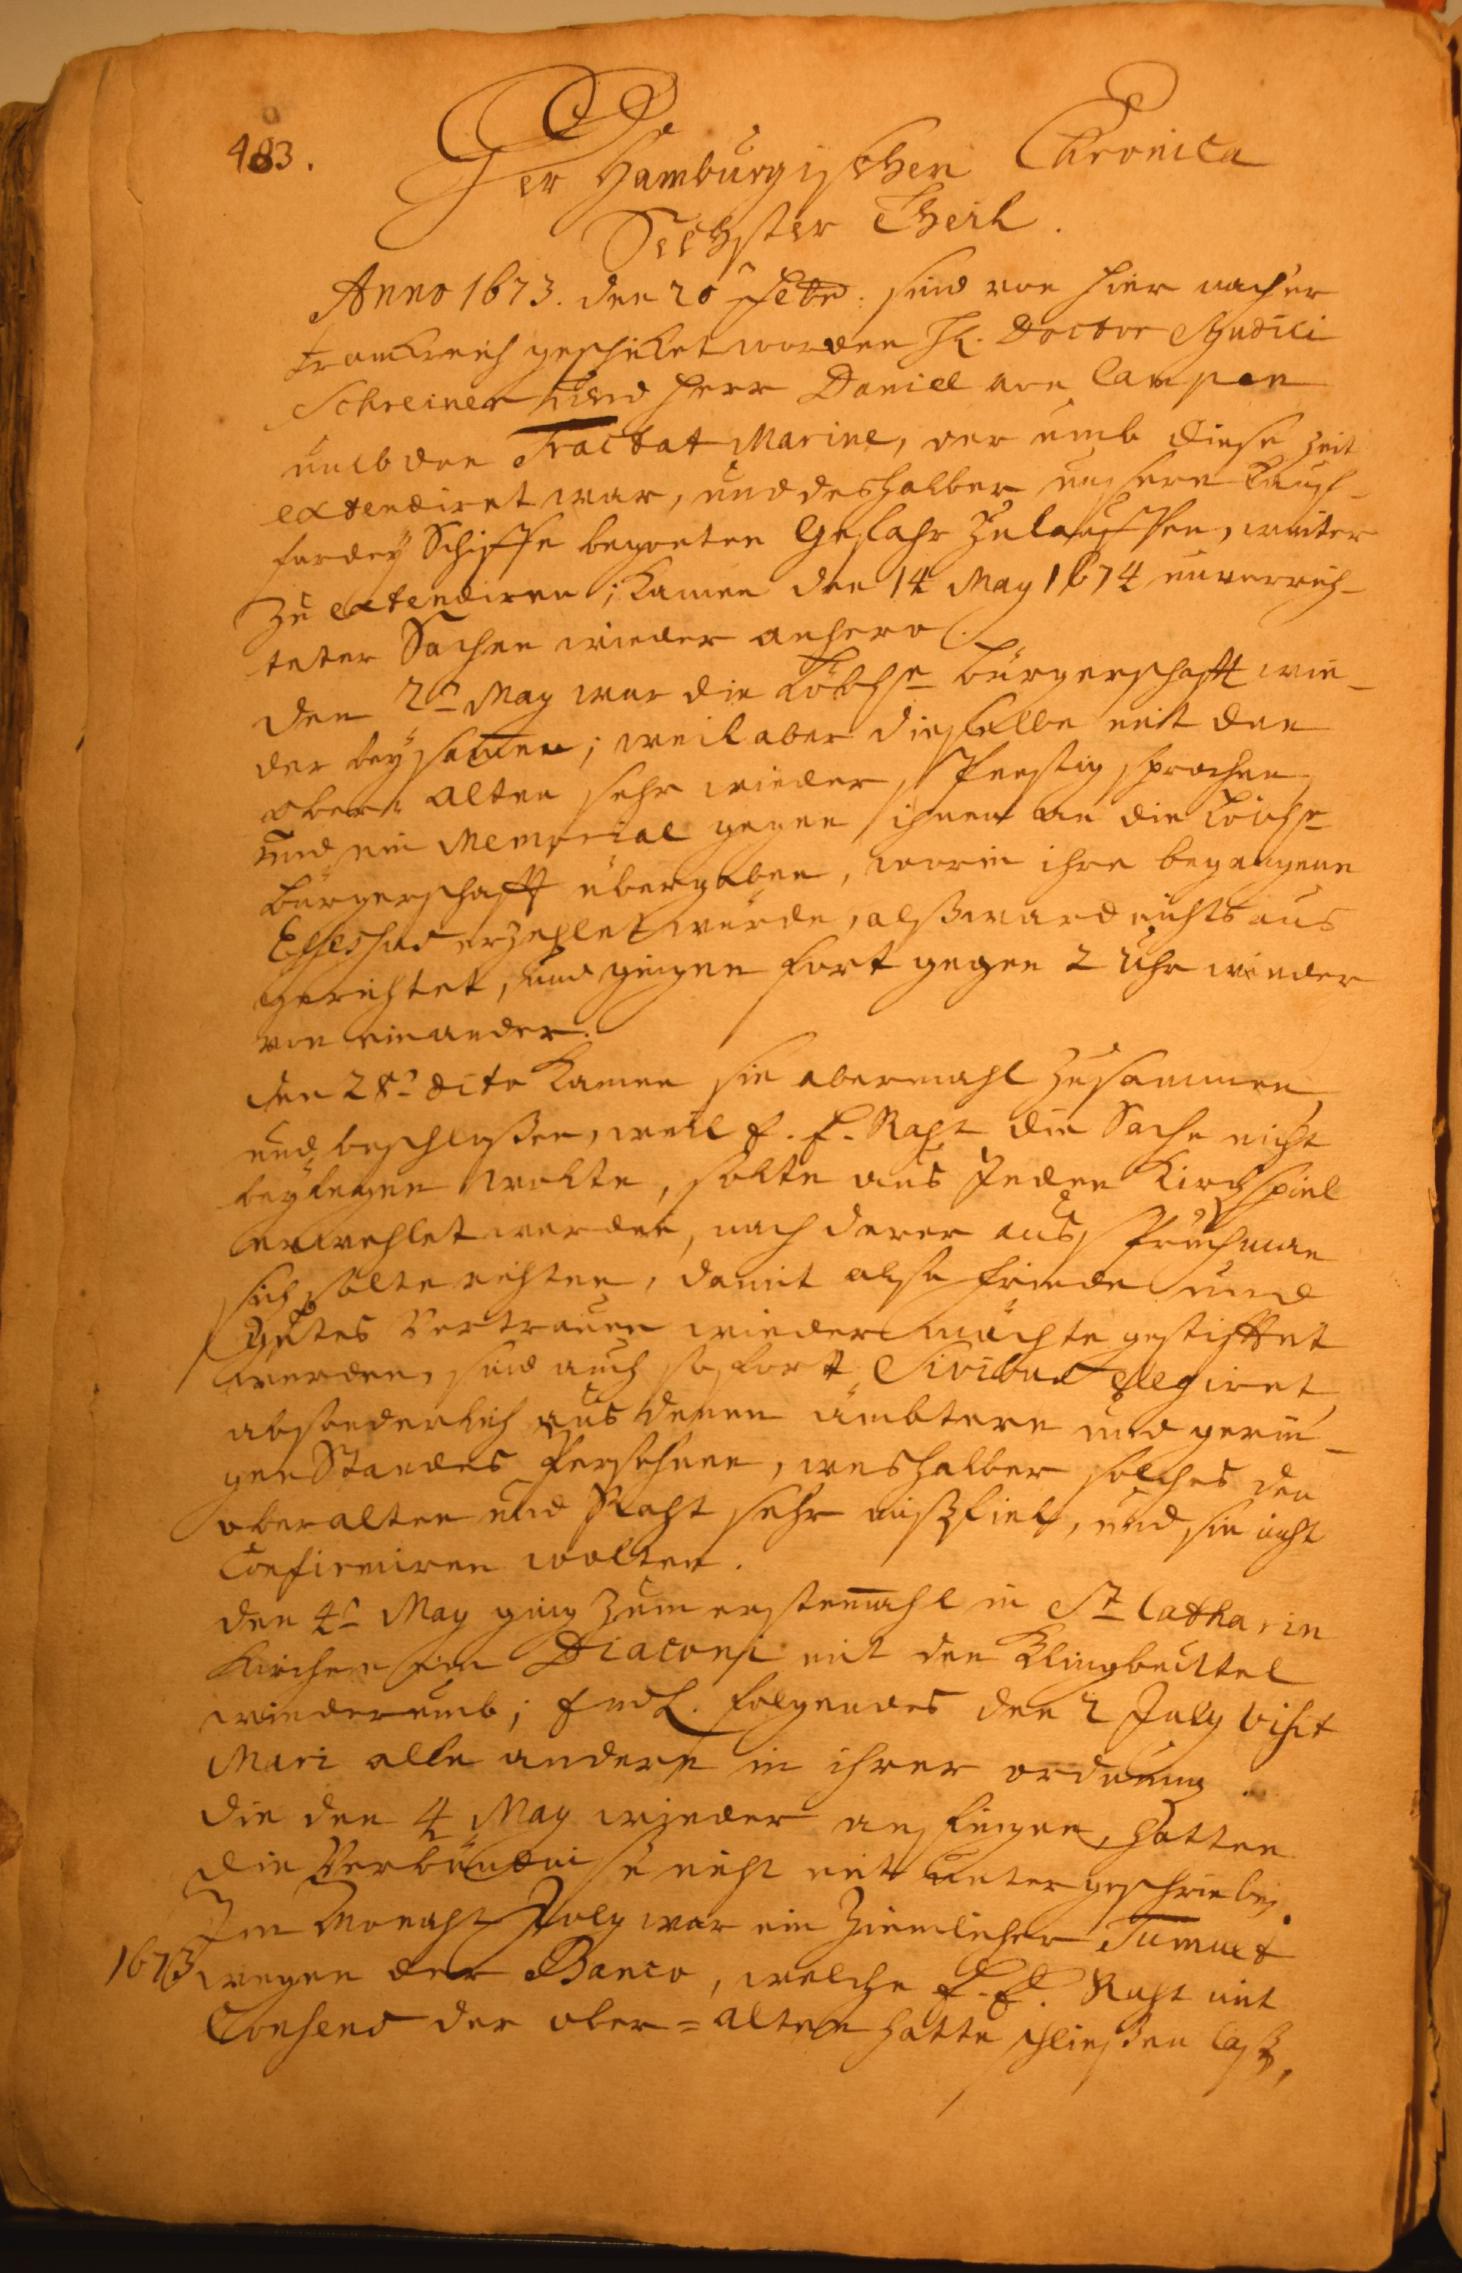 483.
Der Hamburgischen Chronica
Sechster Theil.
Anno 1673. den 20 Febr: sind von hier nacher
Franckreich geschicket worden H. Doctor Syndici
Schreiner und Herr Daniel von Campen
umb den Tractat Marine, der umb diese Zeit
extendiret war, und deshalber unsere Kauff-
fardey Schiffe begonten Gefahr zu lauffen, weiter
zu extendiren; kamen den 14 May 1674 unverrich-
teter Sachen wieder anhero.
den 2t May war die Löbche Bürgerschafft wie-
der beysamen; weil aber dieselbe mit den
ober alten sehr wieder spenstig sprachen,
und ein Memorial gegen ihnen an die Löbche
Bürgerschafft übergaben, worin ihre begangene
erzehlet würde, alß ward nichts aus
gerichtet, und gingen fort gegen 2 Uhr wieder
von einander.
den 28t dito kamen sie abermahl zusammen
und beschlußen, weil E. E. Raht die Sache nicht
beylegen wolte, solte aus Jeden Kirchspiel
erwehlet werden, nach derer ausspruch man
sich solte richten, damit also friede und
gutes Vertrauen wieder möchte gestifftet
werden, sind auch sofort elegiret
absonderlich aus denen ämbtern und gerin-
gen Standes Persohnen, weshalber solches den
oberalten und Raht sehr mißfiel, und sie nicht
Confirmiren wolten.
den 4t May ging zum erstenmahl in St Catharin
Kirchen ein Diaconi mit den Klingbeuttel
wiederumb; endl. folgendes den 2 July Visit
Mari alle andere in ihrer ordnung.
die den 4 May wieder anfingen, hatten
die Verbündniße nicht mit unter geschrieben.
Im Monaht July war ein Ziemlicher Tumult
1673 wegen der Banco, welche E. E. Raht mit
Consens der ober=alten hatte schließen laß,